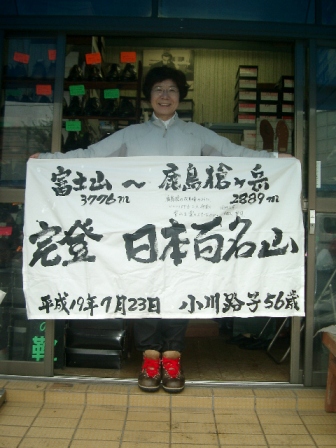 富士山〜鹿島槍ヶ岳
3776m 2889m
完登 日本百名山
平成19年7月23日 小川路子56歳
の